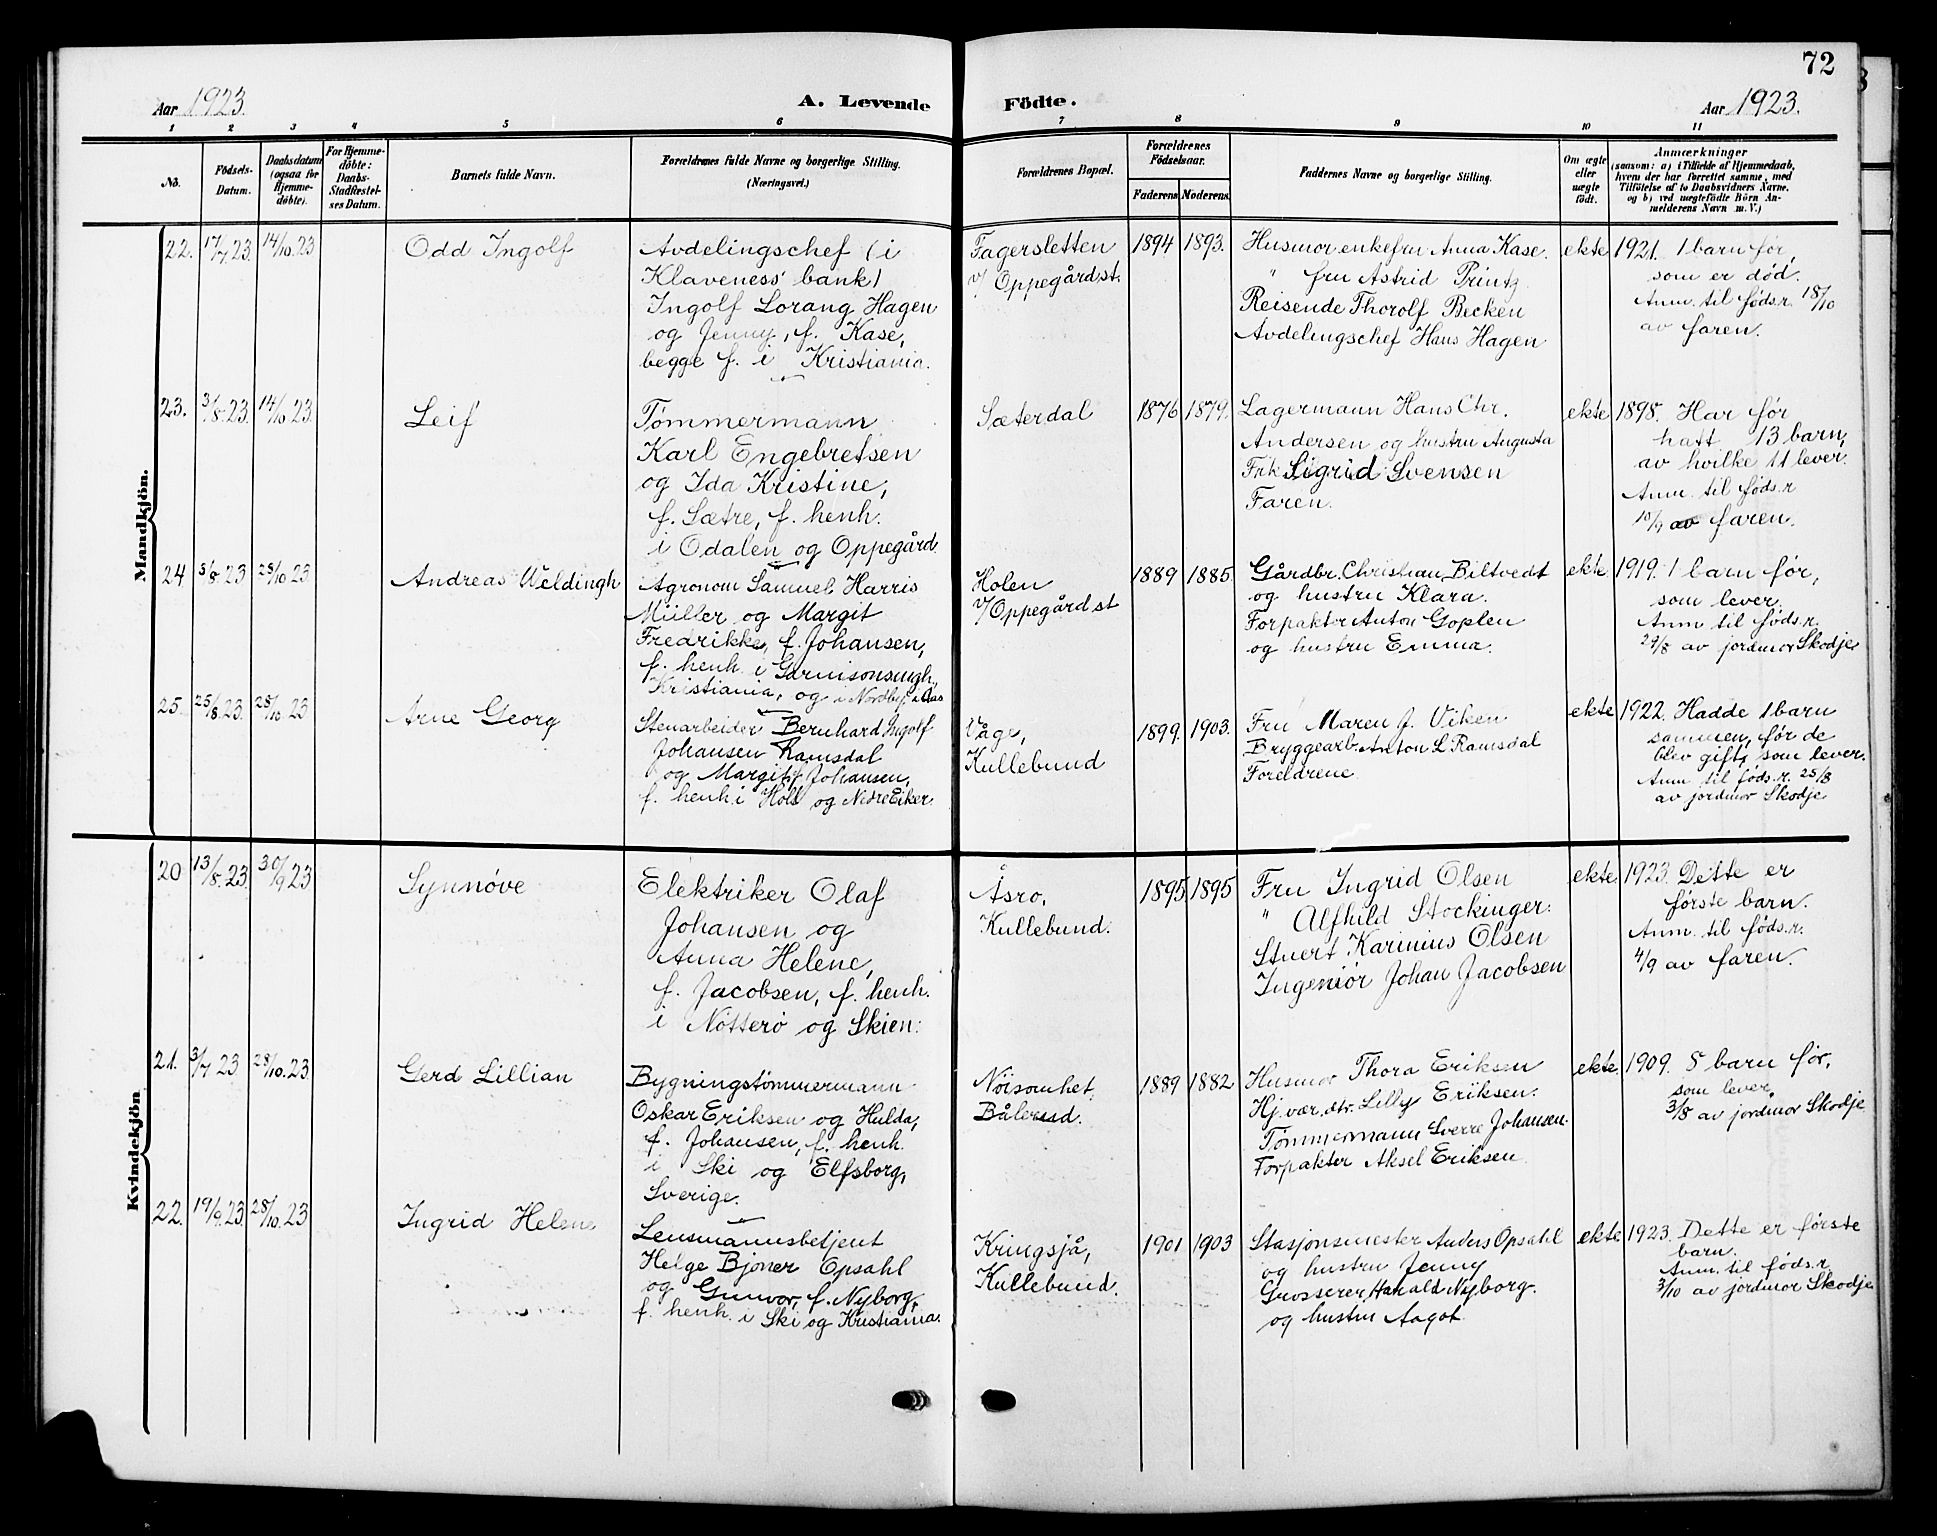 72
Aar 1923.
A. Levende Födte.
Aar 1923.
1 2 3 4 5 6 7 8 9 10 11
No.
Födsels-
Datum.
Daabsdatum
(ogsaa for
Hjemme-
døbte).
For Hjemme-
døbte:
Daabs-
Stadfæstel-
ses Datum.
Barnets fulde Navn.
Forældrenes fulde Navne og borgerlige Stilling.
(Næringsvei.)
Forældrenes Bopæl.
Forældrenes
Födselsaar.
Faderens Moderens
Faddernes Navne og borgerlige Stilling.
Om ægte
eller
uægte
født.
Anmærkninger
(saasom: a) i Tilfælde af Hjemmedaab,
hvem der har forrettet samme, med
Tilföielse af to Daabsvidners Navne,
og b) ved uægtefødte Börn An-
melderens Navn m. V.)
Mandkjön.
22. 17/7 23. 14/10 23
Odd Ingolf
Avdelingschef (i
Klaveness' bank)
Ingolf Lorang Hagen
og Jenny, f. Kase,
begge f. i Kristiania.
Fagersletten
v/ Oppegård st.
1894 1893.
Husmor enkefru Anna Kase.
" fru Astrid Printz
Reisende Thorolf Becken
Avdelingschef Hans Hagen
ekte
1921. 1 barn før,
som er død.
Anm. til føds.r. 18/10
av faren.
23. 3/8 23. 14/10 23
Leif
Tømmermann
Karl Engebretsen
og Ida Kristine,
f. Sætre, f. henh.
i Odalen og Oppegård
Sæterdal
1876 1879.
Lagermann Hans Chr.
Andersen og hustru Augusta
Frk Sigrid Svensen
Faren.
ekte
1898. Har før
hatt 13 barn,
av hvilke 11 lever.
Anm. til føds.r
10/9 av faren.
24 3/8 23 28/10 23
Andreas Weldingh
Agronom Samuel Harris
Müller og Margit
Fredrikke, f. Johansen,
f. henh. i Garnisonsmgh,
Kristiania, og i Nordby i Aas
Holen
v/ Oppegård st
1889 1885.
Gårdbr. Christian Biltvedt
og hustru Klara.
Forpakter Anton Goplen
og hustru Emma.
ekte
1919. 1 barn før,
som lever.
Anm til føds.r.
29/8 av jordmor Skodje
25. 25/8 23. 28/10 23
Arne Georg
Stenarbeider Bernhard Ingolf
Johansen Ramsdal
og Margit, f. Johansen,
f. henh. i Holt og Nedre Eiker.
Våge,
Kullebund
1899. 1903.
Fru Maren J. Viken
Bryggearb. Anton L Ramsdal
Foreldrene
ekte
1922. Hadde 1 barn
sammen, før de
blev gift, som lever.
Anm til føds.r. 25/8
av jordmor Skodje
Kvindekjön
20 13/8 23. 30/9 23
Synnøve
Elektriker Olaf
Johansen og
Anna Helene,
f. Jacobsen, f. henh.
i Nøtterø og Skien.
Åsro,
Kullebund.
1895 1895
Fru Ingrid Olsen
" Alfhild Stockinger.
Stuert Karinius Olsen
Ingeniør Johan Jacobsen
ekte
1923. Dette er
første barn.
Anm. til føds.r.
4/9 av faren.
21. 3/7 23 28/10 23
Gerd Lillian
Bygningstømmermann
Oskar Eriksen og Hulda,
f. Johansen, f. henh.
i Ski og Elfsborg,
Sverige.
Nøisomhet,
Bålerud.
1889 1882
Husmor Thora Eriksen
Hj. vær. dtr. Lilly Eriksen.
Tømmermann Sverre Johansen.
Forpakter Aksel Eriksen
ekte.
1909. 5 barn før,
som lever.
3/8 av jordmor Skodje
22. 19/9 23. 28/10 23
Ingrid Helene
Lensmannsbetjent
Helge Bjøner Opsahl
og Gunvor, f. Nyborg,
f. henh. i Ski og Kristiania.
Kringsjå,
Kullebund.
1901 1903
Stasjonsmester Anders Opsahl
og hustru Jenny
Grosserer Harald Nyborg.
og hustru Aagot
ekte
1923. Dette er første
barn.
Anm. til føds.r.
3/10 av jordmor Skodje